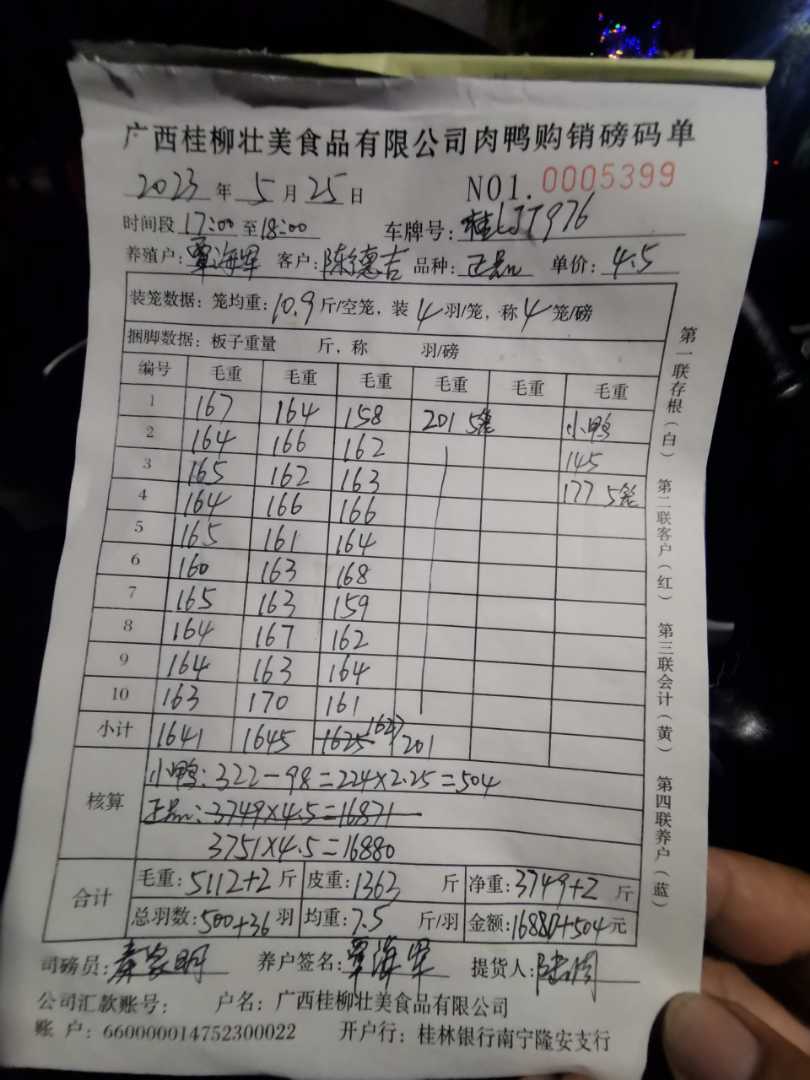 广西桂柳壮美食品有限公司肉鸭购销磅码单
2023年5月25日 NO1.0005399
时间段17:00至18:00 车牌号:桂LJT976
养殖户:覃海军 客户:陈德吉 品种:正品 单价:4.5
装笼数据:笼均重:10.9斤/空笼,装4羽/笼,称4笼/磅
捆脚数据:板子重量 斤,称 羽/磅
编号 毛重 毛重 毛重 毛重 毛重 毛重
1 167 164 158 201 5笼 小鸭
2 164 166 162 145
3 165 162 163 177 5笼
4 164 166 166
5 165 161 164
6 160 163 168
7 165 163 159
8 164 167 162
9 164 163 164
10 163 170 161
小计 1641 1645 1625 1627 201
核算 小鸭:322-98=224×2.25=504
正品:3749×4.5=16871
3751×4.5=16880
合计 毛重:5112+2斤 皮重:1363斤 净重:3749+2斤
总羽数:500+36羽 均重:7.5斤/羽 金额:16880+504元
司磅员:秦家明 养户签名:覃海军 提货人:
公司汇款账号: 户名:广西桂柳壮美食品有限公司
账户:660000014752300022 开户行:桂林银行南宁隆安支行
第一联存根(白) 第二联客户(红) 第三联会计(黄) 第四联养户(蓝)